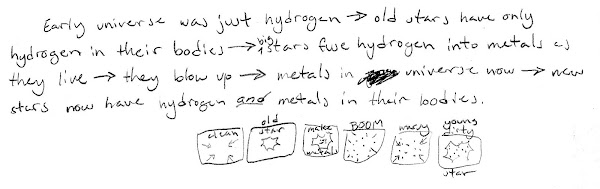 Early universe was just hydrogen → old stars have only
hydrogen in their bodies → big stars fuse hydrogen into metals as
they live → they blow up → metals in universe now → new
stars now have hydrogen and metals in their bodies.
clean
old star
makes metals
BOOM
messy
young dirty star